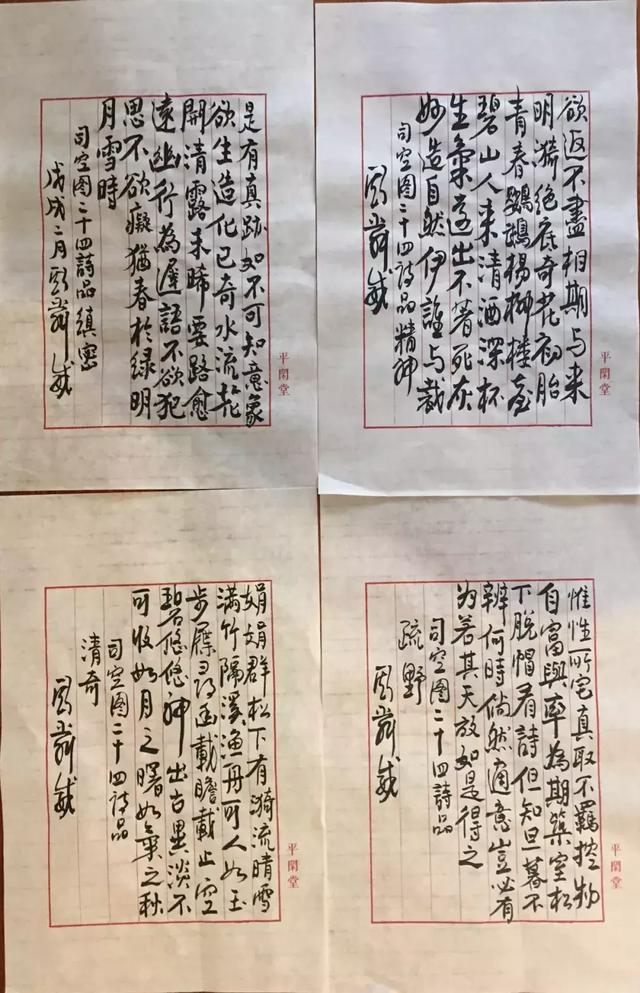 欲返不盡相期与来
明漪絕底奇花初胎
青春鸚鵡楊柳樓臺
碧山人来清酒深杯
生氣遠出不著死灰
妙造自然伊誰与裁
司空图二十四詩品精神
平閑堂
是有真跡如不可知意象
欲生造化已奇水流花
開清露未晞要路愈
遠幽行為遲語不欲犯
思不欲癡猶春於绿明
月雪時
司空图二十四詩品縝密
戊戌二月
平閑堂
惟性所宅真取不羈控物
自富與率為期築室松
下脫帽看詩但知旦暮不
辨何時倘然適意豈必有
為若其天放如是得之
司空图二十四詩品
疏野
平閑堂
娟娟群松下有漪流晴雪
满竹隔溪漁舟可人如玉
步屧寻幽載瞻載止空
碧悠悠神出古異淡不
可收如月之曙如氣之秋
司空图二十四詩品
清奇
平閑堂